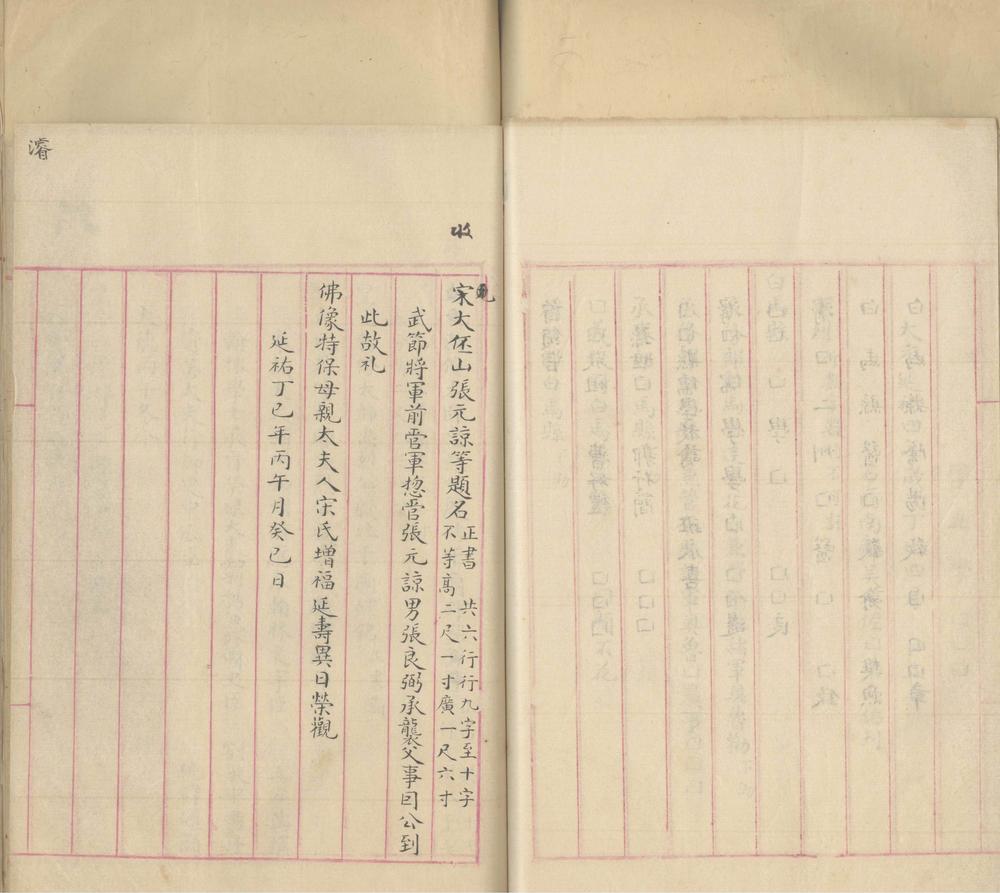 濬
收
元
宋大伾山張元諒等題名
正書 共六行行九字至十字
不等高二尺一寸廣一尺六寸
武節將軍前管軍揔管張元諒男張良弼承襲父事囙公到
此故礼
佛像特保母親太夫人宋氏增福延壽異日榮觀
延祐丁巳年丙午月癸巳日